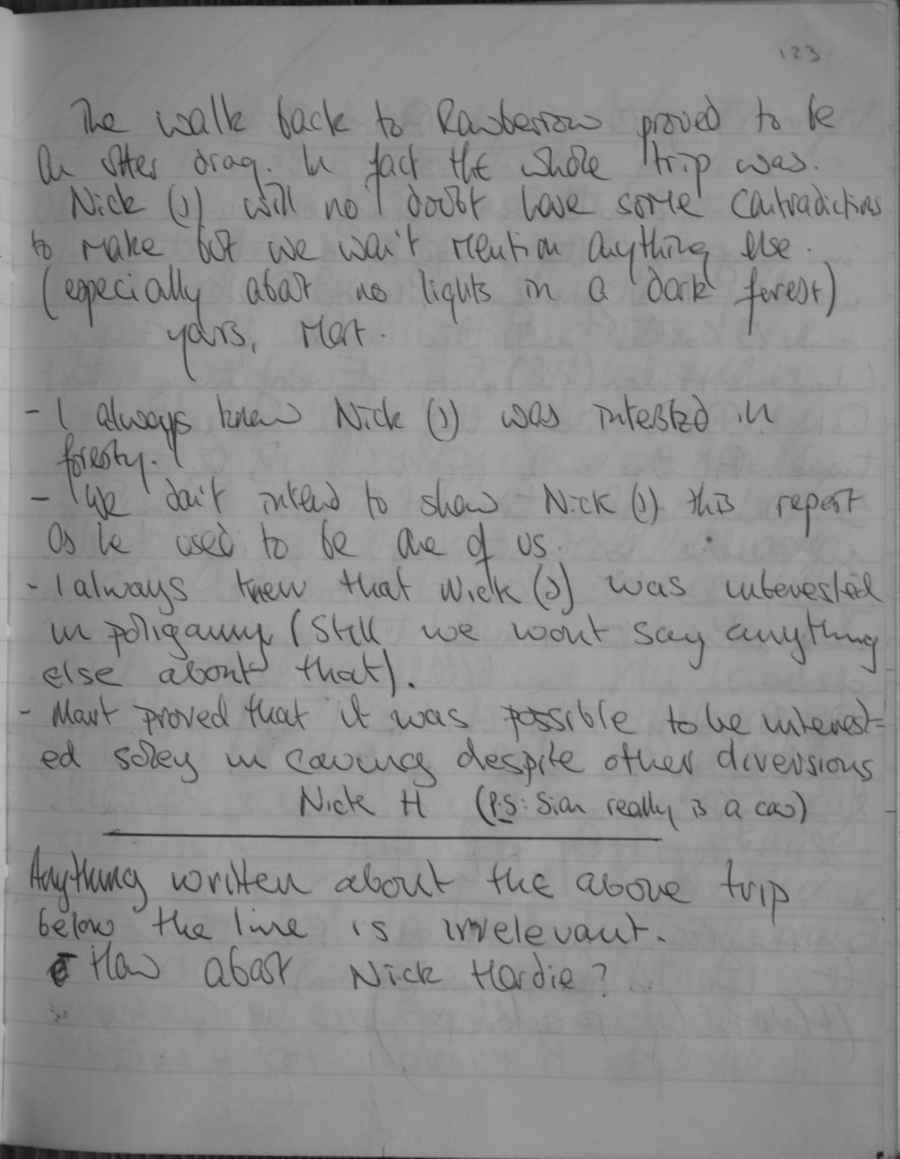 123
The walk back to Rowberrow proved to be
an utter drag. In fact the whole trip was.
Nick (1) will no doubt have some contradictions
to make but we won't mention anything else.
(especially about no lights in a dark forest)
yours, Mart.
- I always knew Nick (1) was intersted in
foresty.
- We don't intend to show Nick (1) this report
as he used to be one of us.
- I always knew that Nick (2) was interested
in poligamy (Still we wont say anything
else about that).
- Mart proved that it was possible to be interest=
ed soley in caving despite other diversions
Nick H (P.S: Sian really is a cow)
Anything written about the above trip
below the line is irrelevant.
How about Nick Hardie?